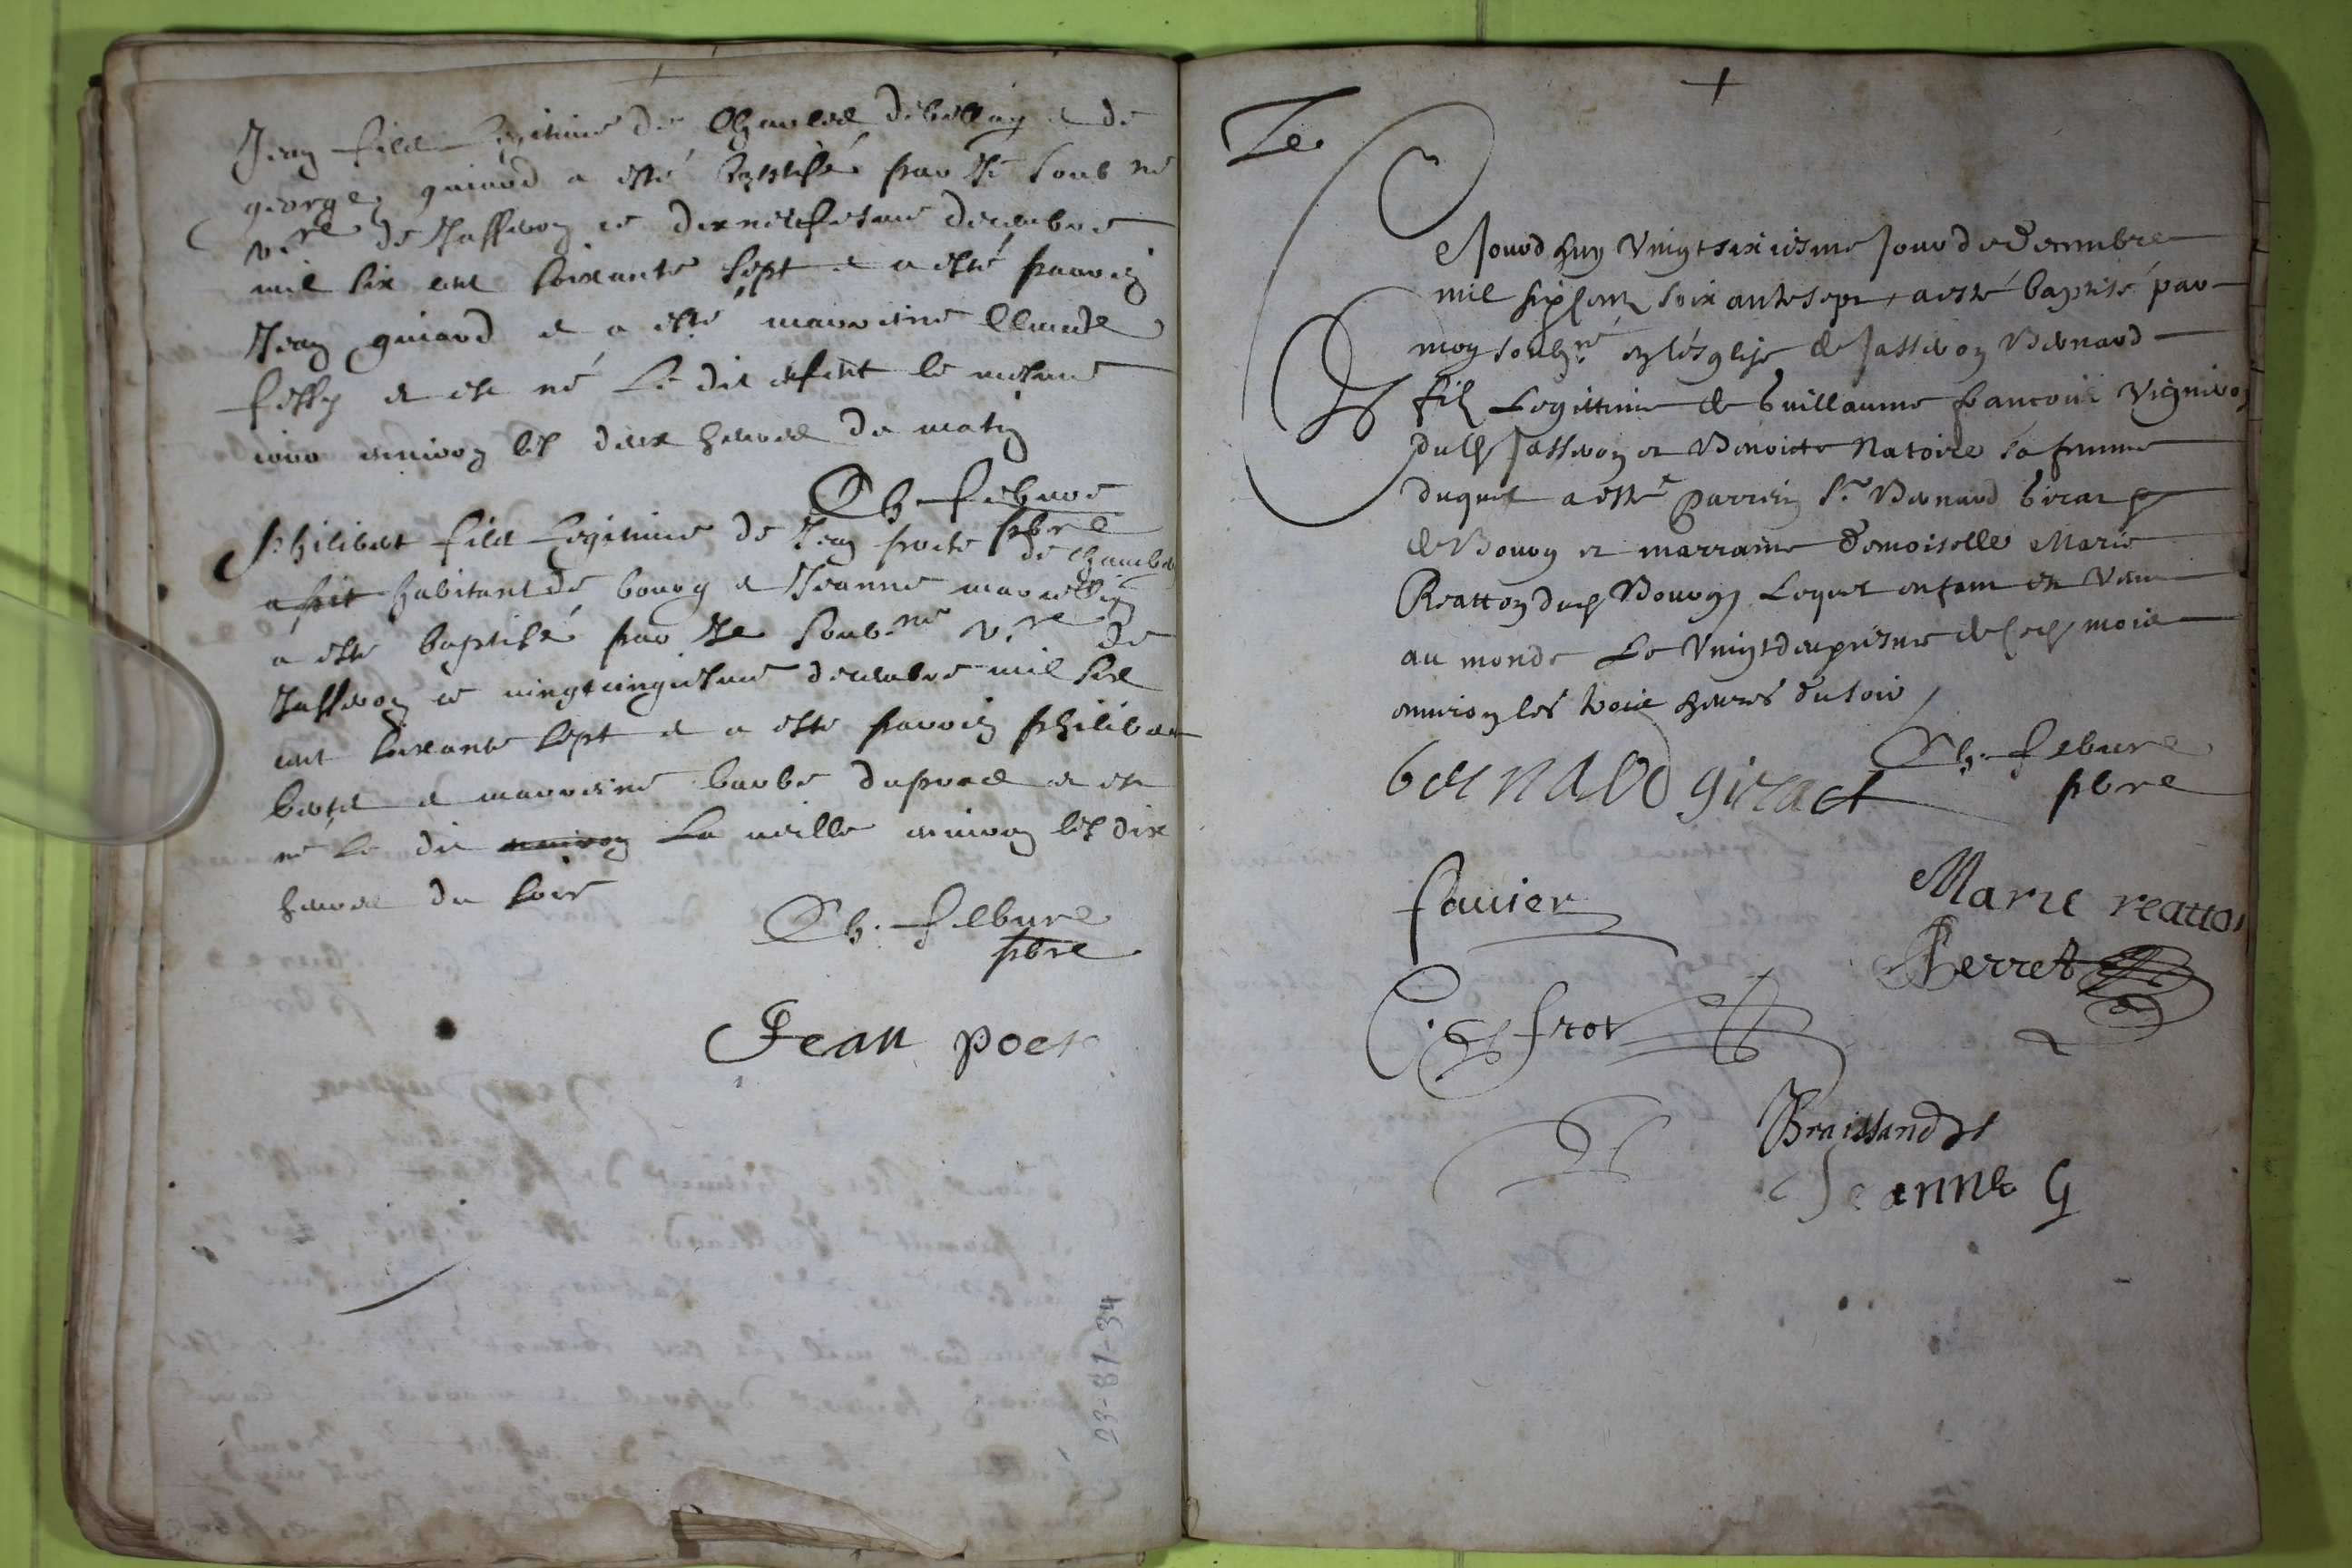 Jean fils Legitime de Charles debellay & de
george guiard a esté baptisé par Je soub né
v.re de Jasseron ce dixneufiesme decembre
mil six cent soixante sept & a esté parrein
Jean guiard & a esté marreine Claude
fessy & est né Le dit enfant le mesme
jour environ les deux heures du matin
Ch. febure
pbre
Philibert fils Legitime de Jean poete de
habitant de bourg & Jeanne
a esté baptisé par Je soub.né v.re de
Jasseron ce vingtcinquiesme decembre mil six
cent soixante sept & a esté parrein philibert
& marreine barbe duprad & est
né Le dit La veille environ les dix
heures du soir
Ch. febure
pbre
Jean poete
23-87-34
+
Je
Ce Jourd huy Vingt sixiesme Jour de decembre
mil six cent soixante sept, a esté baptisé par
moy soubz.né en l'esglise de Jasseron Bernard
filz Legittime de Guillaume francois Vigneron
dud Jasseron et Benoicte Natoire sa femme
duquel a esté parrein S.r Bernard Girar
de Bourg et marraine demoiselle Marie
Reatton dud Bourg, Lequel enfant est Venu
au monde Le Vingt deuxiesme de mois
environ les trois heures du soir,
Ch. febure
pbre
bernard girard
favier
Marie reatton
Perret
frot
Braissand
Jeanne G